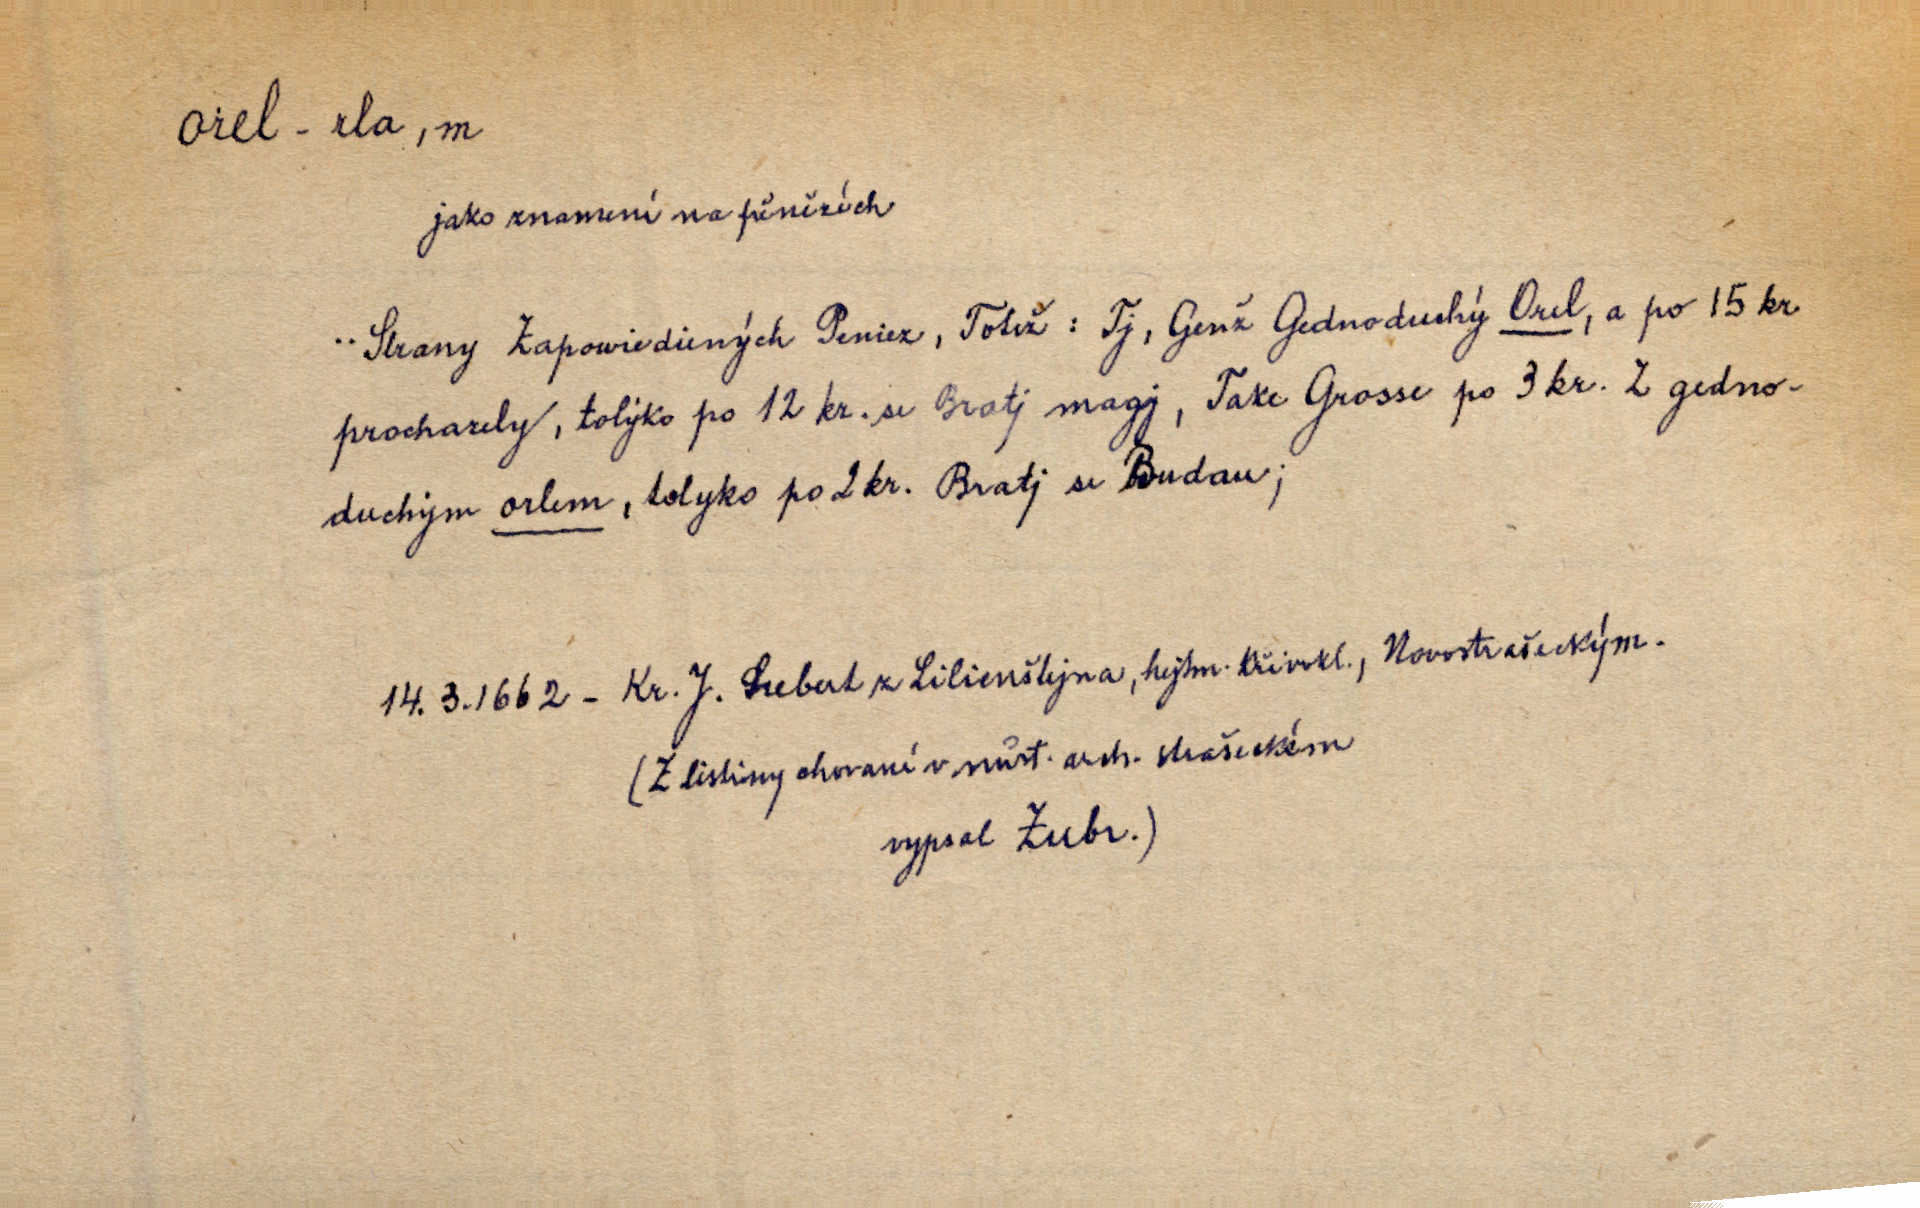 orel - rla, m
jako znamení na penězích
"Strany Zapowiediených Peniez, Totiž: Tj, Genž Gednoduchý Orel, a po 15 kr
procharely, tolýko po 12 kr. se Bratj magj, Take Grosse po 3 kr. Z gedno-
duchým orlem, tolyko po 2 kr. Bratj se Budau;
14. 3. 1662 - Kr. J. z Lilienštejna, hejtm. křivokl., Novostrašeckým.
(Z listiny chované v měst. arch. strašeckém
vypsal Zubr.)